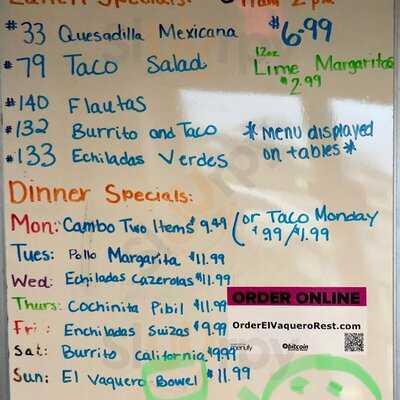 Lunch Specials: 11am 2pm
#33 Quesadilla Mexicana $6.99
#79 Taco Salad
12oz
Lime Margaritas
$2.99
#140 Flautas
#132 Burrito and Taco
#133 Echiladas Verdes
*Menu displayed
on tables*
Dinner Specials:
Mon: Combo Two Items $9.49 (or Taco Monday
$.99/$1.99
Tues: Pollo Margarita $11.99
Wed: Echiladas Cazerolas $11.99
Thurs: Cochinita Pibil $11.99
Fri: Enchiladas Suizas $9.99
Sat: Burrito California $9.99
Sun: El Vaquero Bowel $11.99
ORDER ONLINE
OrderElVaqueroRest.com
bitcoin